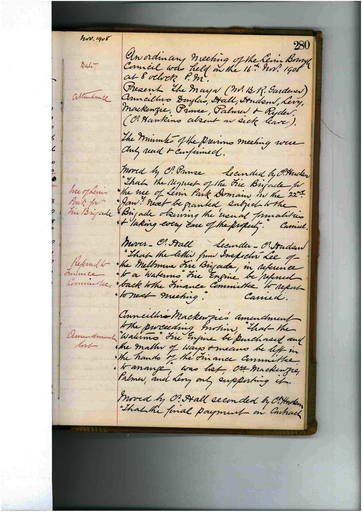 Nov. 1908
280
Date
An ordinary Meeting of the Levin Borough
Council was held on the 16th Nov. 1908
at 8 oclock P.M.
Attendance
Present The Mayor (Mr B. R. Gardener)
Councillors Douglas, Hall, Hudson, Levy,
Mackenzie, Prouse, Palmer & Ryder.
(Cr Hankins absent on sick leave).
The Minutes of the previous meeting were
duly read & confirmed.
Moved by Cr Prouse Seconded by Cr Hudson
Use of Levin
Park for
Fire Brigade
"That the request of the Fire Brigade for
the use of Levin Park Domain on the 22nd
Jany. next be granted subject to the
Brigade observing the usual formalities
& taking every care of the property". Carried.
Mover Cr Hall Seconder Cr Hudson
Referred to
Finance
Committee
"That the letter from Inspector Lee of
the Melbourne Fire Brigade, in reference
to a Waterous Fire Engine be referred
back to the Finance Committee to report
to next meeting" Carried.
Amendment
lost
Councillor Mackenzie's amendment
to the preceeding motion, "That the
Waterous Fire Engine be purchased and
the matter of ways & means be left in
the hands of the Finance Committee
to arrange" was lost Crs Mackenzie,
Palmer, and Levy only supporting it.
Moved by Cr Hall seconded by Cr Hudson
"That the final payment on Contract